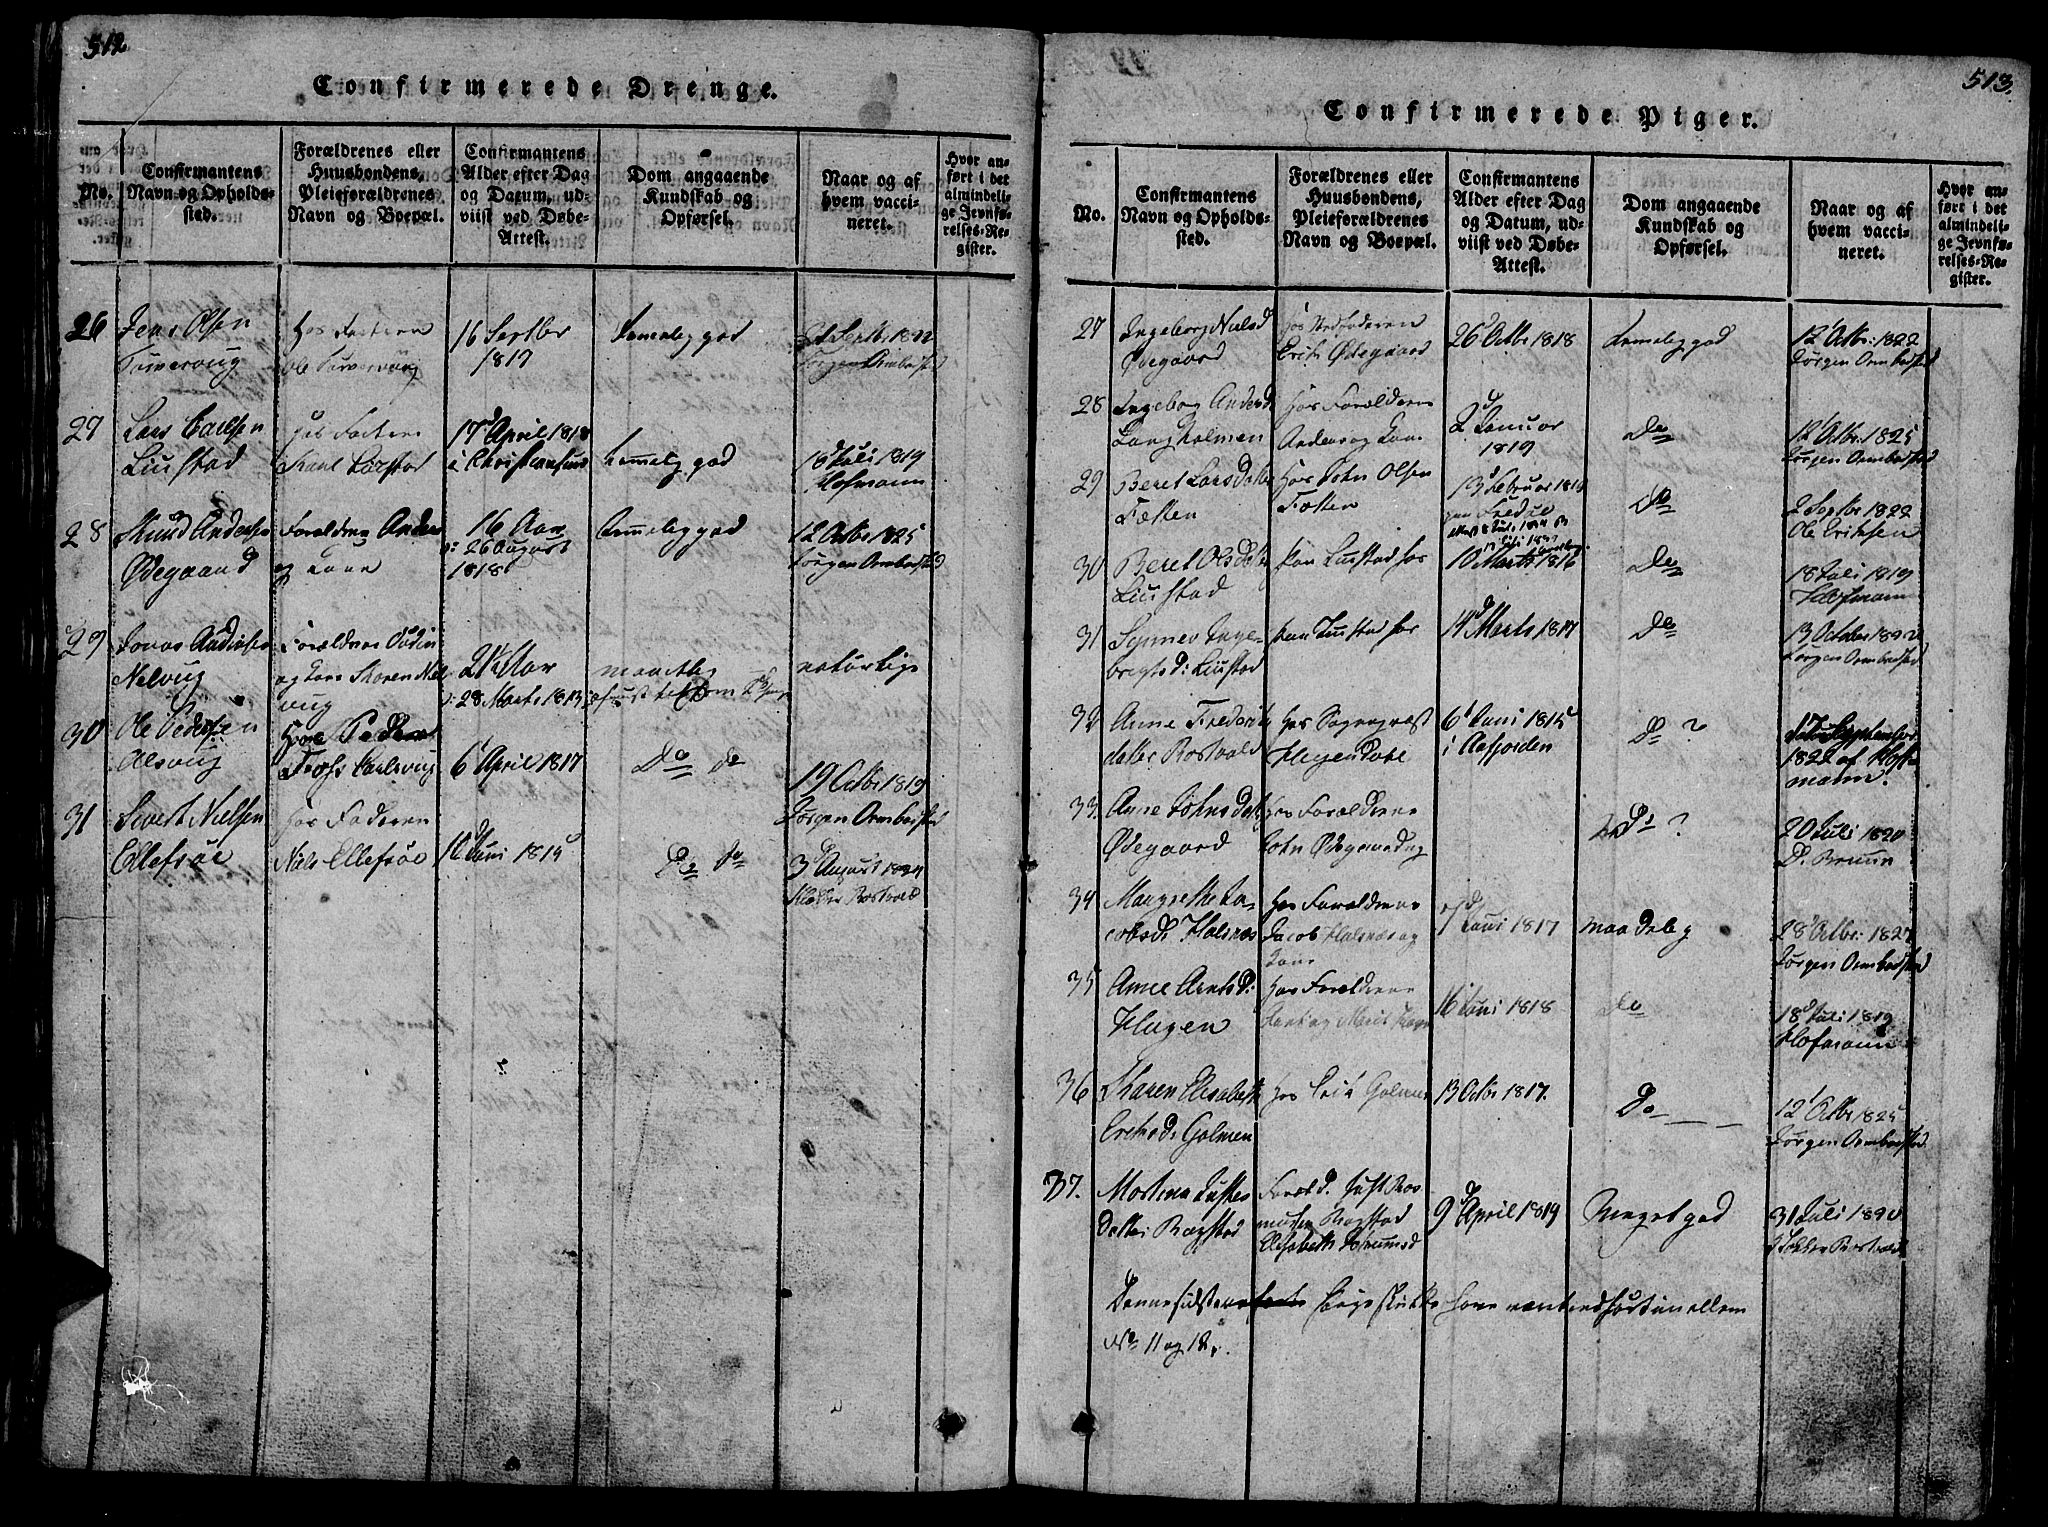 512
Confirmerede Drenge.
No.
Confirmantens
Navn og Opholds-
sted.
Forældrenes eller
Huusbondens,
Pleieforældrenes
Navn og Boepæl.
Confirmantens
Alder efter Dag
og Datum, ud-
viist ved Døbe-
Attest.
Dom angaaende
Kundskab og
Opførsel.
Naar og af
hvem vacci-
neret.
Hvor an-
ført i det
almindeli-
ge Jevnfø-
relses-Re-
gister.
26
Jens Olsen
hos Faderen
Ole
16 Septbr
1817
temelig god
Septbr 1822
Jørgen Ormbostad
27
Lars Carlsen
Liustad
hos Faderen
17 April 1818
i Christiansund
temmelig god
18 Juli 1819
Hofmann
28
Knud Andersen
Ødegaard
Forældrene Anders
og Kone
16 Aar
26 August
1818
temmelig god
12 Octbr 1825
Jørgen Ormbostad
29
Jonas Audinsen
Nelvug
Forældrene Audin
og Kone Maren Nel-
vug
21½ Aar
28 Marts 1813
maadelig
naturlige
30
Ole Pedersen
Alsvug
Hos Peder
6 April 1817
Do do
19 Octbr 1819
Jørgen Ormbostad
31
Sivert Nielsen
Ellefsøe
Hos Faderen
Niels Ellefsøe
Juni 1815
Do do
3 August 1824
Rostvold
513.
Confirmerede Piger.
No.
Confirmantens
Navn og Opholds-
sted.
Forældrenes eller
Huusbondens,
Pleieforældrenes
Navn og Boepæl.
Confirmantens
Alder efter Dag
og Datum, ud-
viist ved Døbe-
Attest.
Dom angaaende
Kundskab og
Opførsel.
Naar og af
hvem vacci-
neret.
Hvor an-
ført i det
almindeli-
ge Jevnfø-
relses-Re-
gister.
27
Ingeborg Nielsd
Ødegaard
hos Stedfaderen
Erich Ødegaard
26 Octbr 1818
temelig god
12 Octbr: 1822
Jørgen Ormbostad
28
Ingebor Andersd
Langholmen
hos Forældrene
Anders og Kone
2 Januar
1819
Do
12 Octbr: 1825
Jørgen Ormbostad
29
Beret Larsdatter
Fætten
hos John Olsen
Fætten
13 Februar 1819
Do
2 Septbr 1822
Ole Eriksen
30
Beret Olsdatter
Liustad
paa Liustad hos
10 Marts 1816
Do
18 Juli 1819
Hofmann
31
Synnev Inge-
brigtsd: Liustad
paa Liustad hos
14 Marts 1817
Do
13 October 1822
Jørgen Ormbostad
32
Anne Frederik
datter Rostvold
Hos Sogneprest
Hagerdahl
6 Juni 1815
i Aafjorden
Do ?
17 September
1822 af Hoff-
mann.
33.
Anne Johnsdatt
Ødegaard
hos Forældrene
John Ødegaard og
Do ?
20 Juli 1820
D: Bruun
34
Maugrethe Ja-
cobsd: Halsnæs
hos Forældrene
Jacob Halsnæs og
Kone
7 Juni 1817
maadelig
28 Octbr: 1827
Jørgen Ormbostad
35
Anne Arntsd:
Hagen
Hos Forældrene
Arnt og Marit Hagen
16 Juni 1818
do
18 Juli 1819
Hofmann
36
Maren Elisabeth
Erichsd: Golmen
hos Erik Golmen
13 Octbr 1817.
Do
12 Octbr 1825
Jørgen Ormbostad
37.
Mortina Justes
datter Rægstad
Foræld. Just Ras-
mussen Rægstad
Elisabeth
9 April 1819
Meget god
31 Juli 1820
Rostvold
Denne sidste Pige skulde have været indført imellem
No 11 og 12.